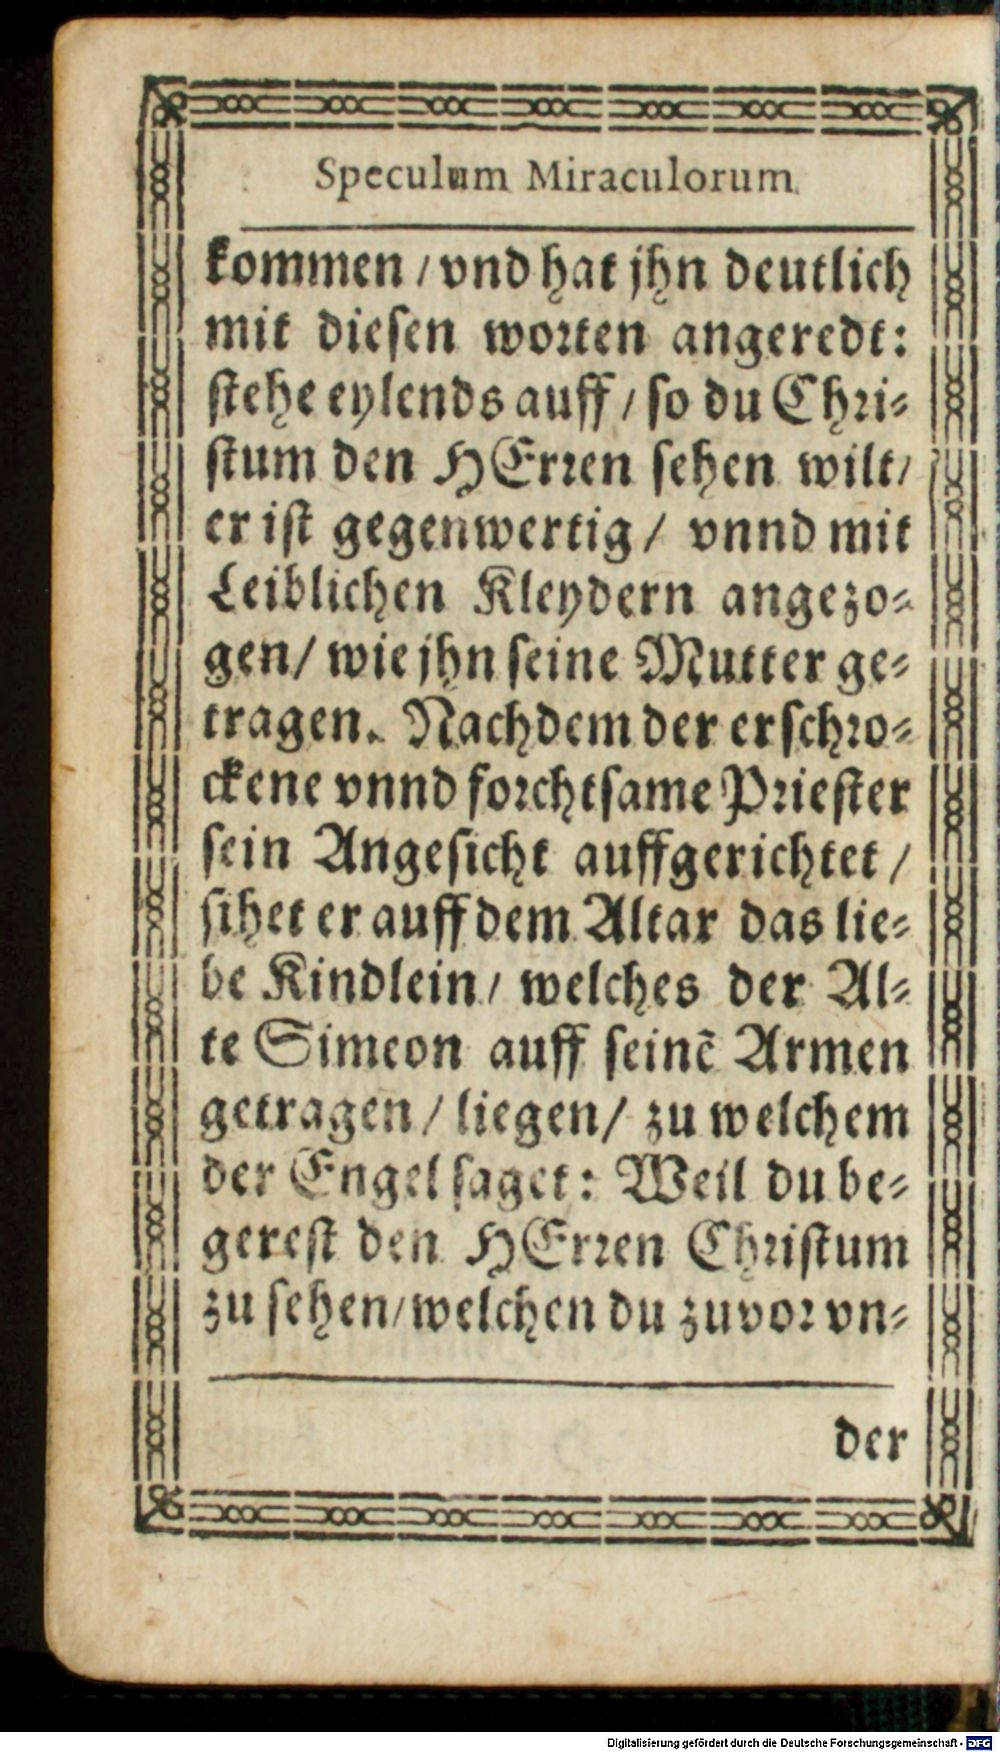 Speculum Miraculorum
kommen / vnd hat jhn deutlich
mit diesen worten angeredt:
stehe eylends auff / so du Chri-
stum den HErren sehen wilt /
er ist gegenwertig / vnnd mit
Leiblichen Kleydern angezo-
gen / wie jhn seine Mutter ge-
tragen. Nachdem der erschro-
ckene vnnd forchtsame Priester
sein Angesicht auffgerichtet /
sihet er auff dem Altar das lie-
be Kindlein / welches der Al-
te Simeon auff seinē Armen
getragen / liegen / zu welchem
der Engel saget: Weil du be-
gerest den HErren Christum
zu sehen / welchen du zuvor vn-
der
Digitalisierung gefördert durch die Deutsche Forschungsgemeinschaft - DFG